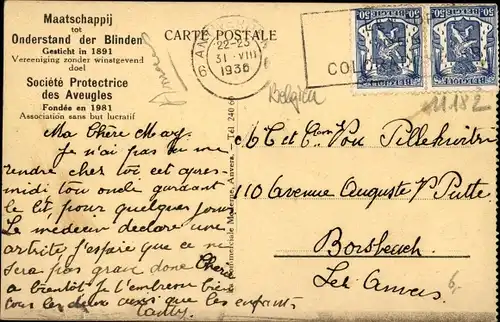 Maatschappij
tot
Onderstand der Blinden
Gesticht in 1891
Vereeniging zonder winstgevend
doel
Société Protectrice
des Aveugles
Fondée en 1981
Association sans but lucratif
CARTE POSTALE
22-23
31 VIII
1936
50 50
BELGIE BELGIQUE
Anvers
Belgien
11182
Ma Chère Mary.
Je n'ai pas pu me
rendre chez toi cet apres-
midi ton oncle gardant
le lit, pour quelques jours
Le médecin déclare une
artrite j'espère que ce ne
sera pas grave donc Cherie
a bientôt Je t'embrasse bien
tous les deux ainsi que les enfants
Tél. 240.60
Moderne, Anvers.
Mr et Me Von Pillekwitn
110 Avenue Auguste V. Putte
Borsbeech
Lez Anvers
6,-